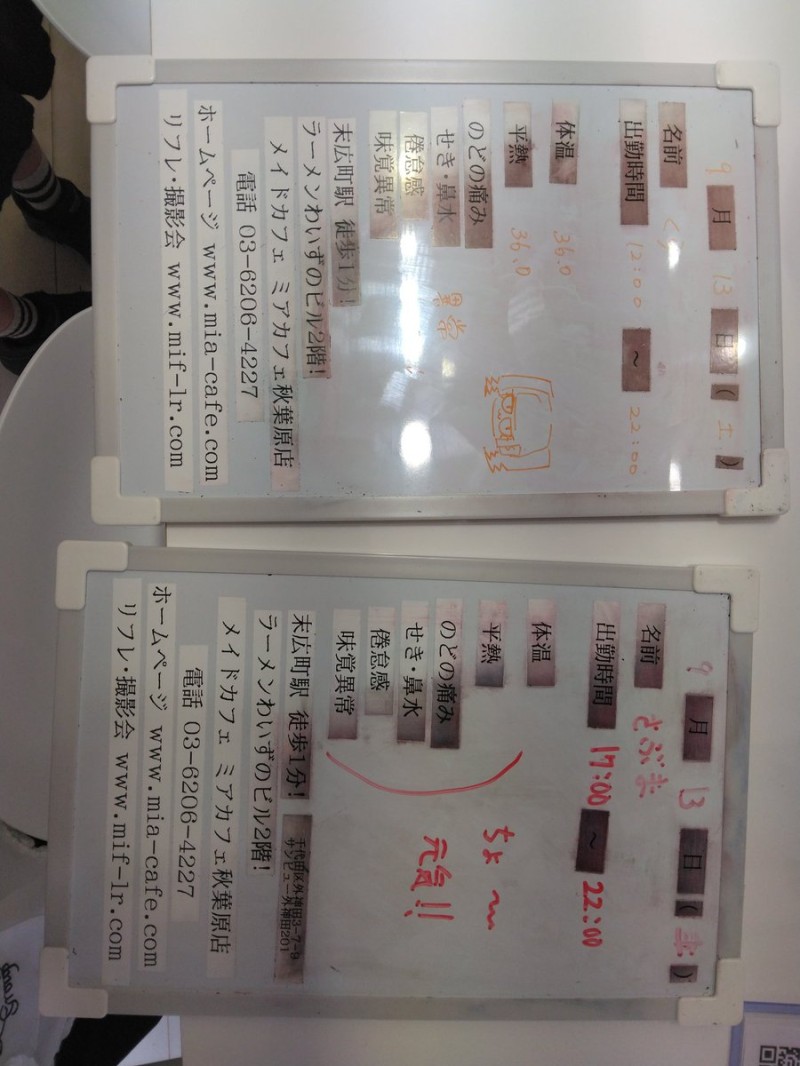 9月13日(土)
名前
出勤時間 12:00 ~ 22:00
体温 36.0
平熱 36.0
のどの痛み
せき・鼻水 異常
倦怠感
味覚異常
末広町駅 徒歩1分!
ラーメンわいずのビル2階!
メイドカフェ ミアカフェ秋葉原店
電話 03-6206-4227
ホームページ www.mia-cafe.com
リフレ・撮影会 www.mif-lr.com
9月13日(土)
名前
出勤時間 17:00 ~ 22:00
体温
平熱 ちょ〜
のどの痛み
せき・鼻水 元気!!
倦怠感
味覚異常
末広町駅 徒歩1分! 千代田区外神田3-7-8
サンビュー外神田201
ラーメンわいずのビル2階!
メイドカフェ ミアカフェ秋葉原店
電話 03-6206-4227
ホームページ www.mia-cafe.com
リフレ・撮影会 www.mif-lr.com